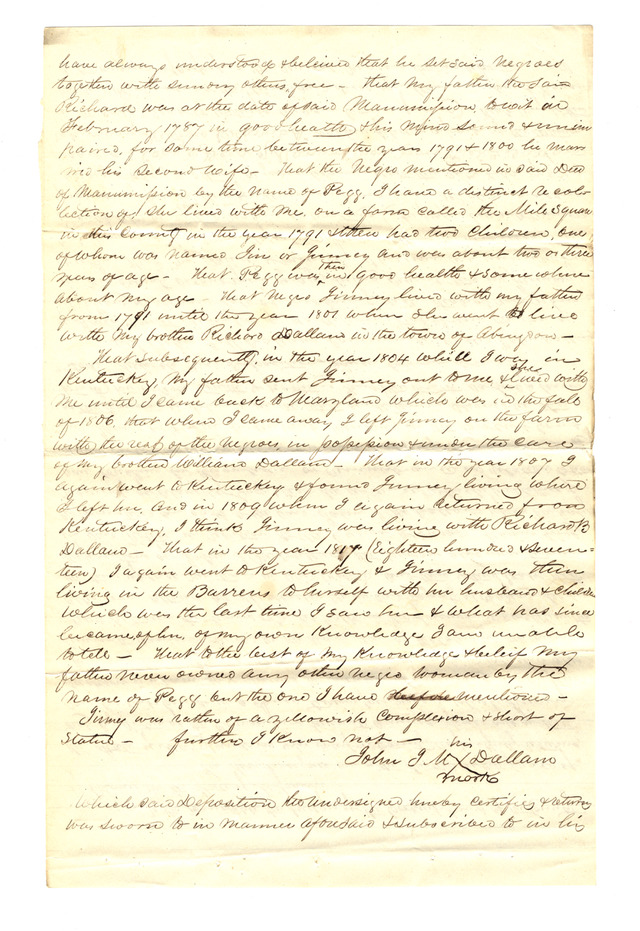 have always understood & believed that he set said Negroes
together with sundry others, free – that my father the said
Richard was at the date of said Manumission to wit in
February 1787 in good health & his mind sound & unim
paired, for some time between the years 1791 & 1800 he mar
ried his second wife – That the Negro mentioned in said Deed
of Manumission by the name of Pegg, I have a distinct recol
lection of, She lived with me, on a farm called the Mile Square
in this County in the year 1791 & then had two Children, one
of whom was named Jin or Jinney and was about two or three
years of age – That Pegg was then in good health & some where
about my age – That Negro Jinney lived with my father
from 1791 until the year 1801 when she went to live
with my brother Richard Dallam in the town of Abingdon –
That subsequently, in the year 1804 while I was in
Kentucky, my father sent Jinney out to me & she lived with
me until I came back to Maryland which was in the fall
of 1806, that when I came away I left Jinney on the farm
with the rest of the Negroes, in possession & under the care
of my brother William Dallam – That in the year 1807 I
again went to Kentucky & found Jinney living where
I left her, and in 1809 when I again returned from
Kentucky, I think Jinney was living with Richard B
Dallam – That in the year 1817 (Eighteen hundred & seven-
teen) I again went to Kentucky & Jinney was then
living in the Barrens to herself with her husband & children
which was the last time I saw her & what has since
became of her, of my own knowledge I am unable
to tell – That to the best of my knowledge & belief my
father never owned any other negro woman by the
name of Pegg but the one I have before mentioned –
Jinney was rather of a yellowish Complexion & short of
Stature – further I know not –
John J. M. his X mark Dallam
Which said Deposition the undersigned hereby certifies & returns
was sworn to in manner aforesaid & subscribed to in his